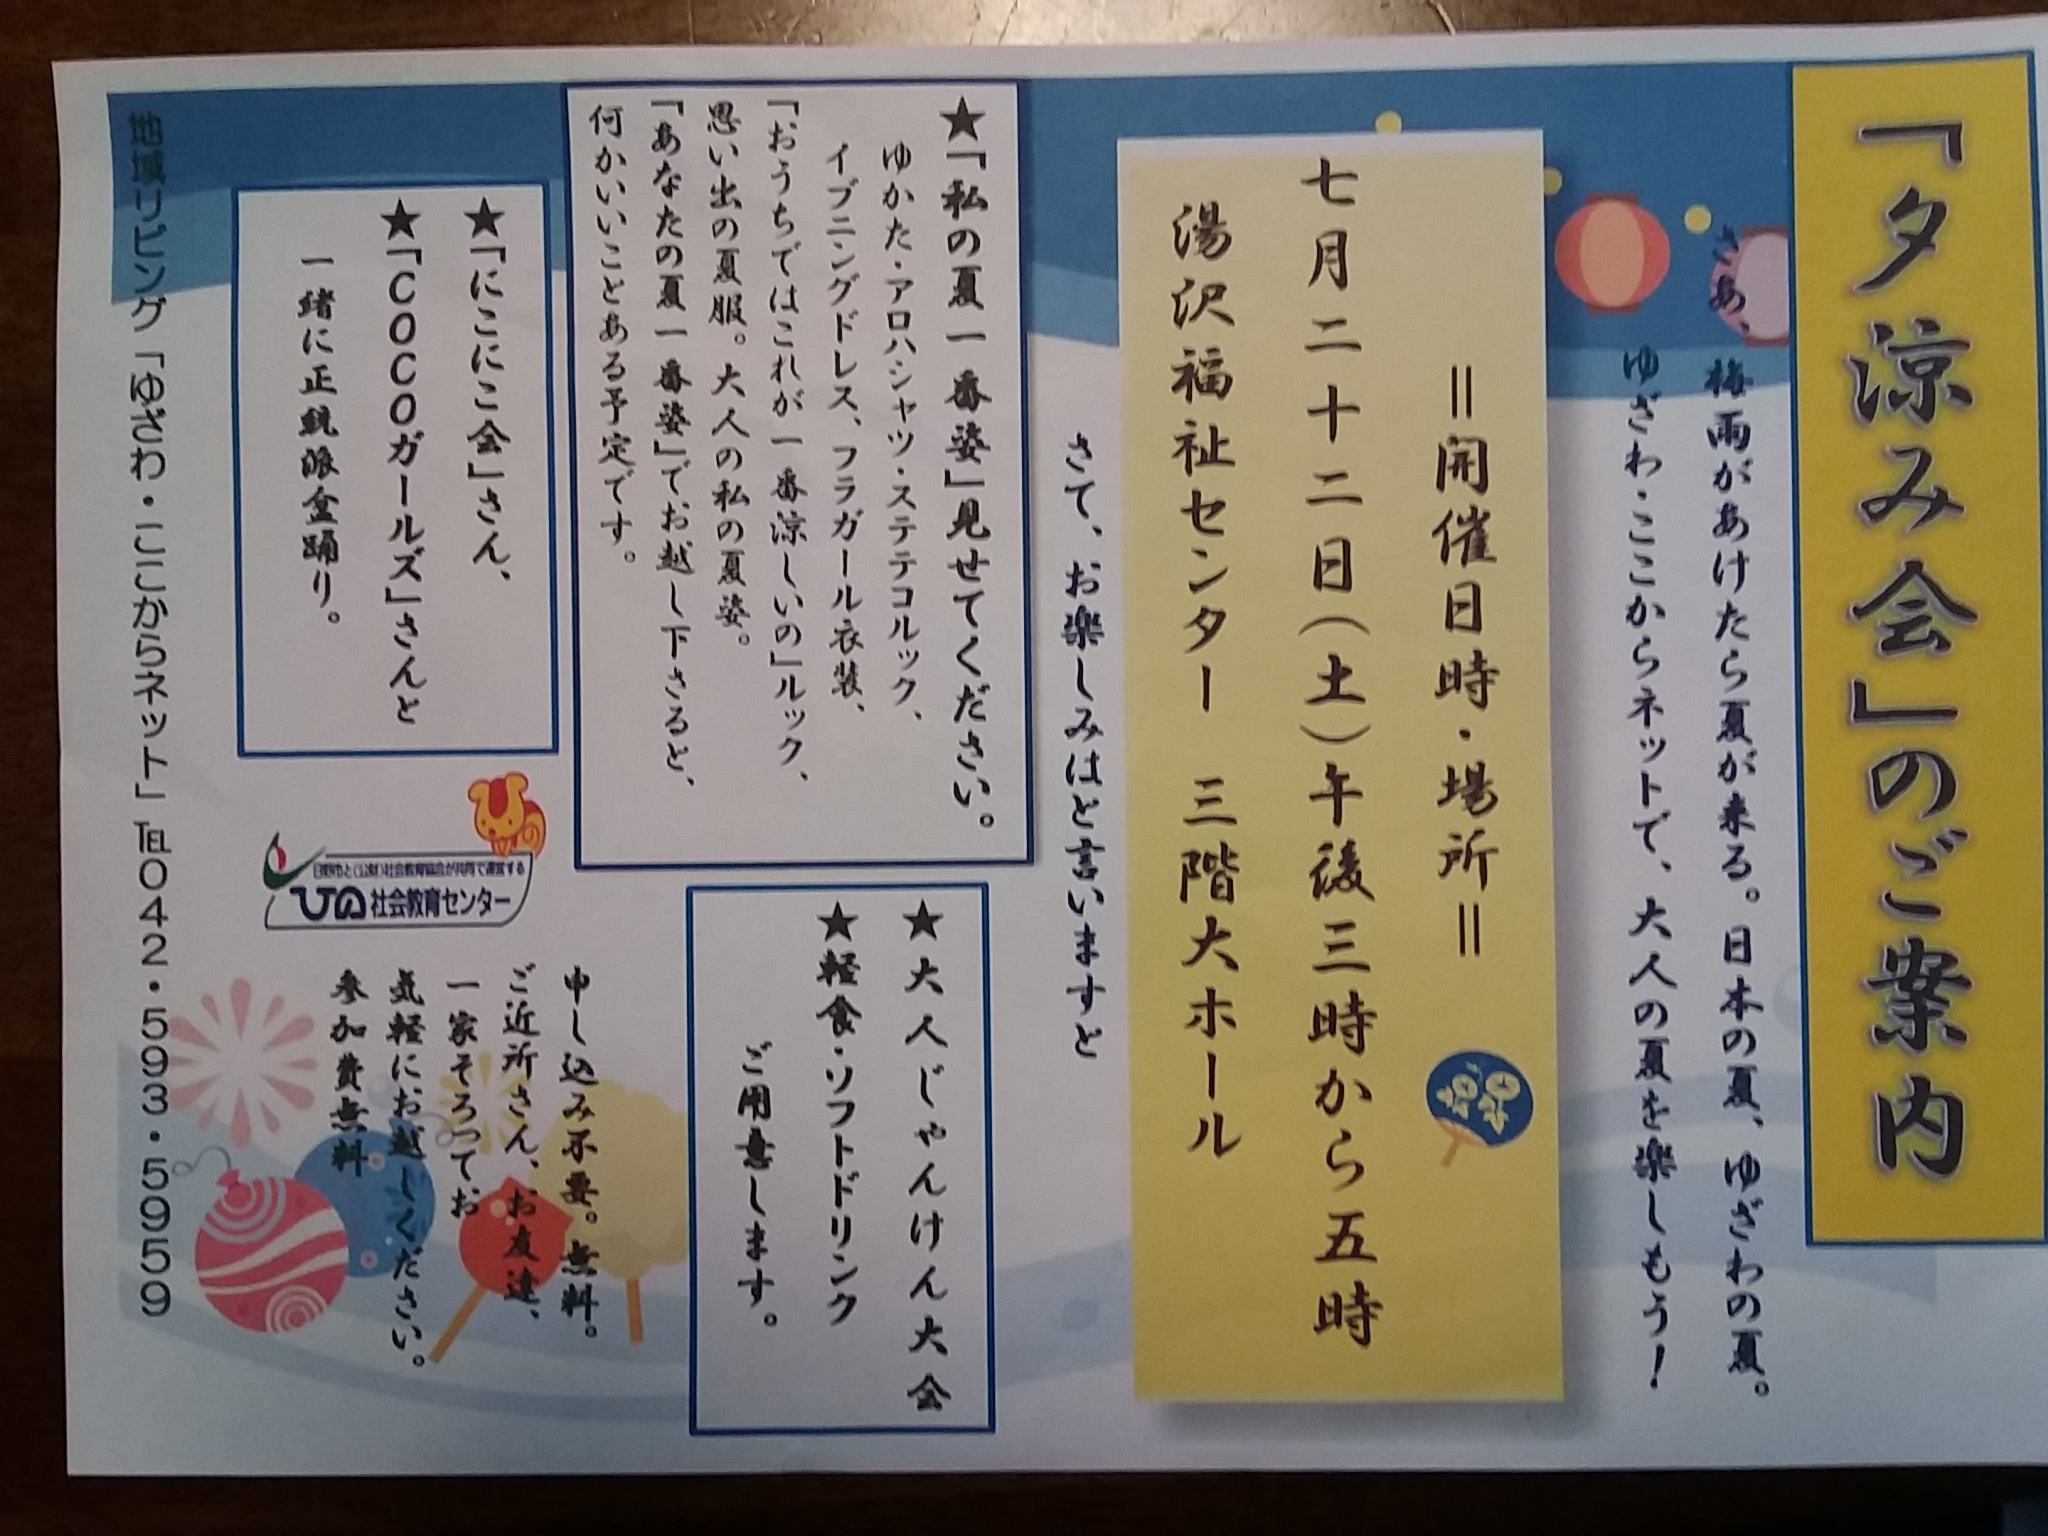 「夕涼み会」のご案内
さあ、梅雨があけたら夏が来る。日本の夏、ゆざわの夏。
ゆざわ・ここからネットで、大人の夏を楽しもう！
＝開催日時・場所＝
七月二十二日(土)午後三時から五時
湯沢福祉センター 三階大ホール
さて、お楽しみはと言いますと
★「私の夏一番姿」見せてください。
ゆかた・アロハシャツ・ステテコルック、
イブニングドレス、フラガール衣装、
「おうちではこれが一番涼しいの」ルック、
思い出の夏服。大人の私の夏姿。
「あなたの夏一番姿」でお越し下さると、
何かいいことある予定です。
★大人じゃんけん大会
★軽食・ソフトドリンク
ご用意します。
★「にこにこ会」さん、
★「COCOガールズ」さんと
一緒に正統派盆踊り。
申し込み不要。無料。
ご近所さん、お友達、
一家そろってお
気軽にお越しください。
参加費無料
日野市と(公財)社会教育協会が共同で運営する
ひの社会教育センター
地域リビング「ゆざわ・ここからネット」℡042・593・5959